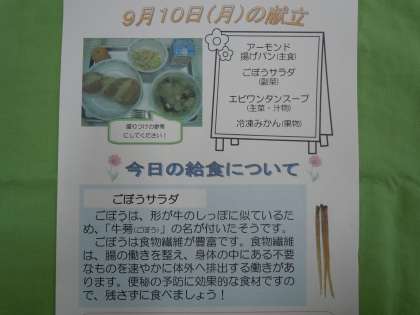 9月10日(月)の献立
アーモンド
揚げパン(主食)
ごぼうサラダ
(副菜)
エビワンタンスープ
(主菜・汁物)
冷凍みかん(果物)
盛りつけの参考
にしてください!
今日の給食について
ごぼうサラダ
ごぼうは、形が牛のしっぽに似ているた
め、「牛蒡(ごぼう)」の名が付いたそうです。
ごぼうは食物繊維が豊富です。食物繊維
は、腸の働きを整え、身体の中にある不要
なものを速やかに体外へ排出する働きがあ
ります。便秘の予防に効果的な食材ですの
で、残さずに食べましょう!